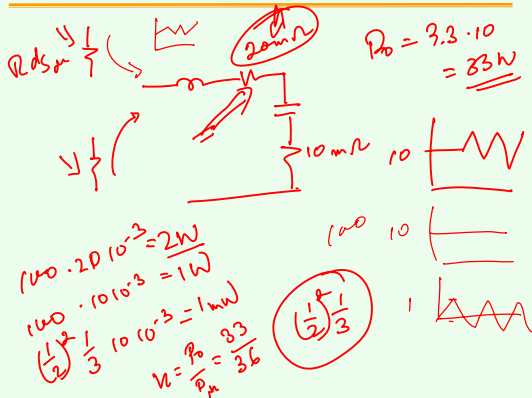 Rds on
20mΩ
P₀ = 3.3 · 10
= 33W
10mΩ
10
100 10
1
100 · 20 10⁻³ = 2W
100 · 10 10⁻³ = 1W
(1/2)² 1/3 10 10⁻³ = 1mW
(1/2)² 1/3
η = P₀/Pin = 33/36